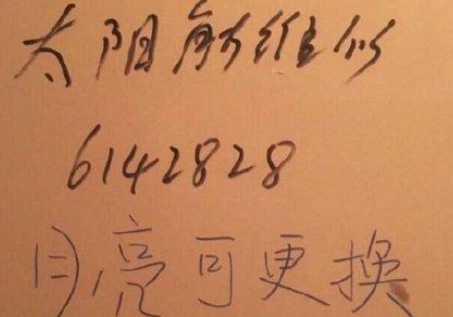 太阳能维修
6142828
月亮可更换